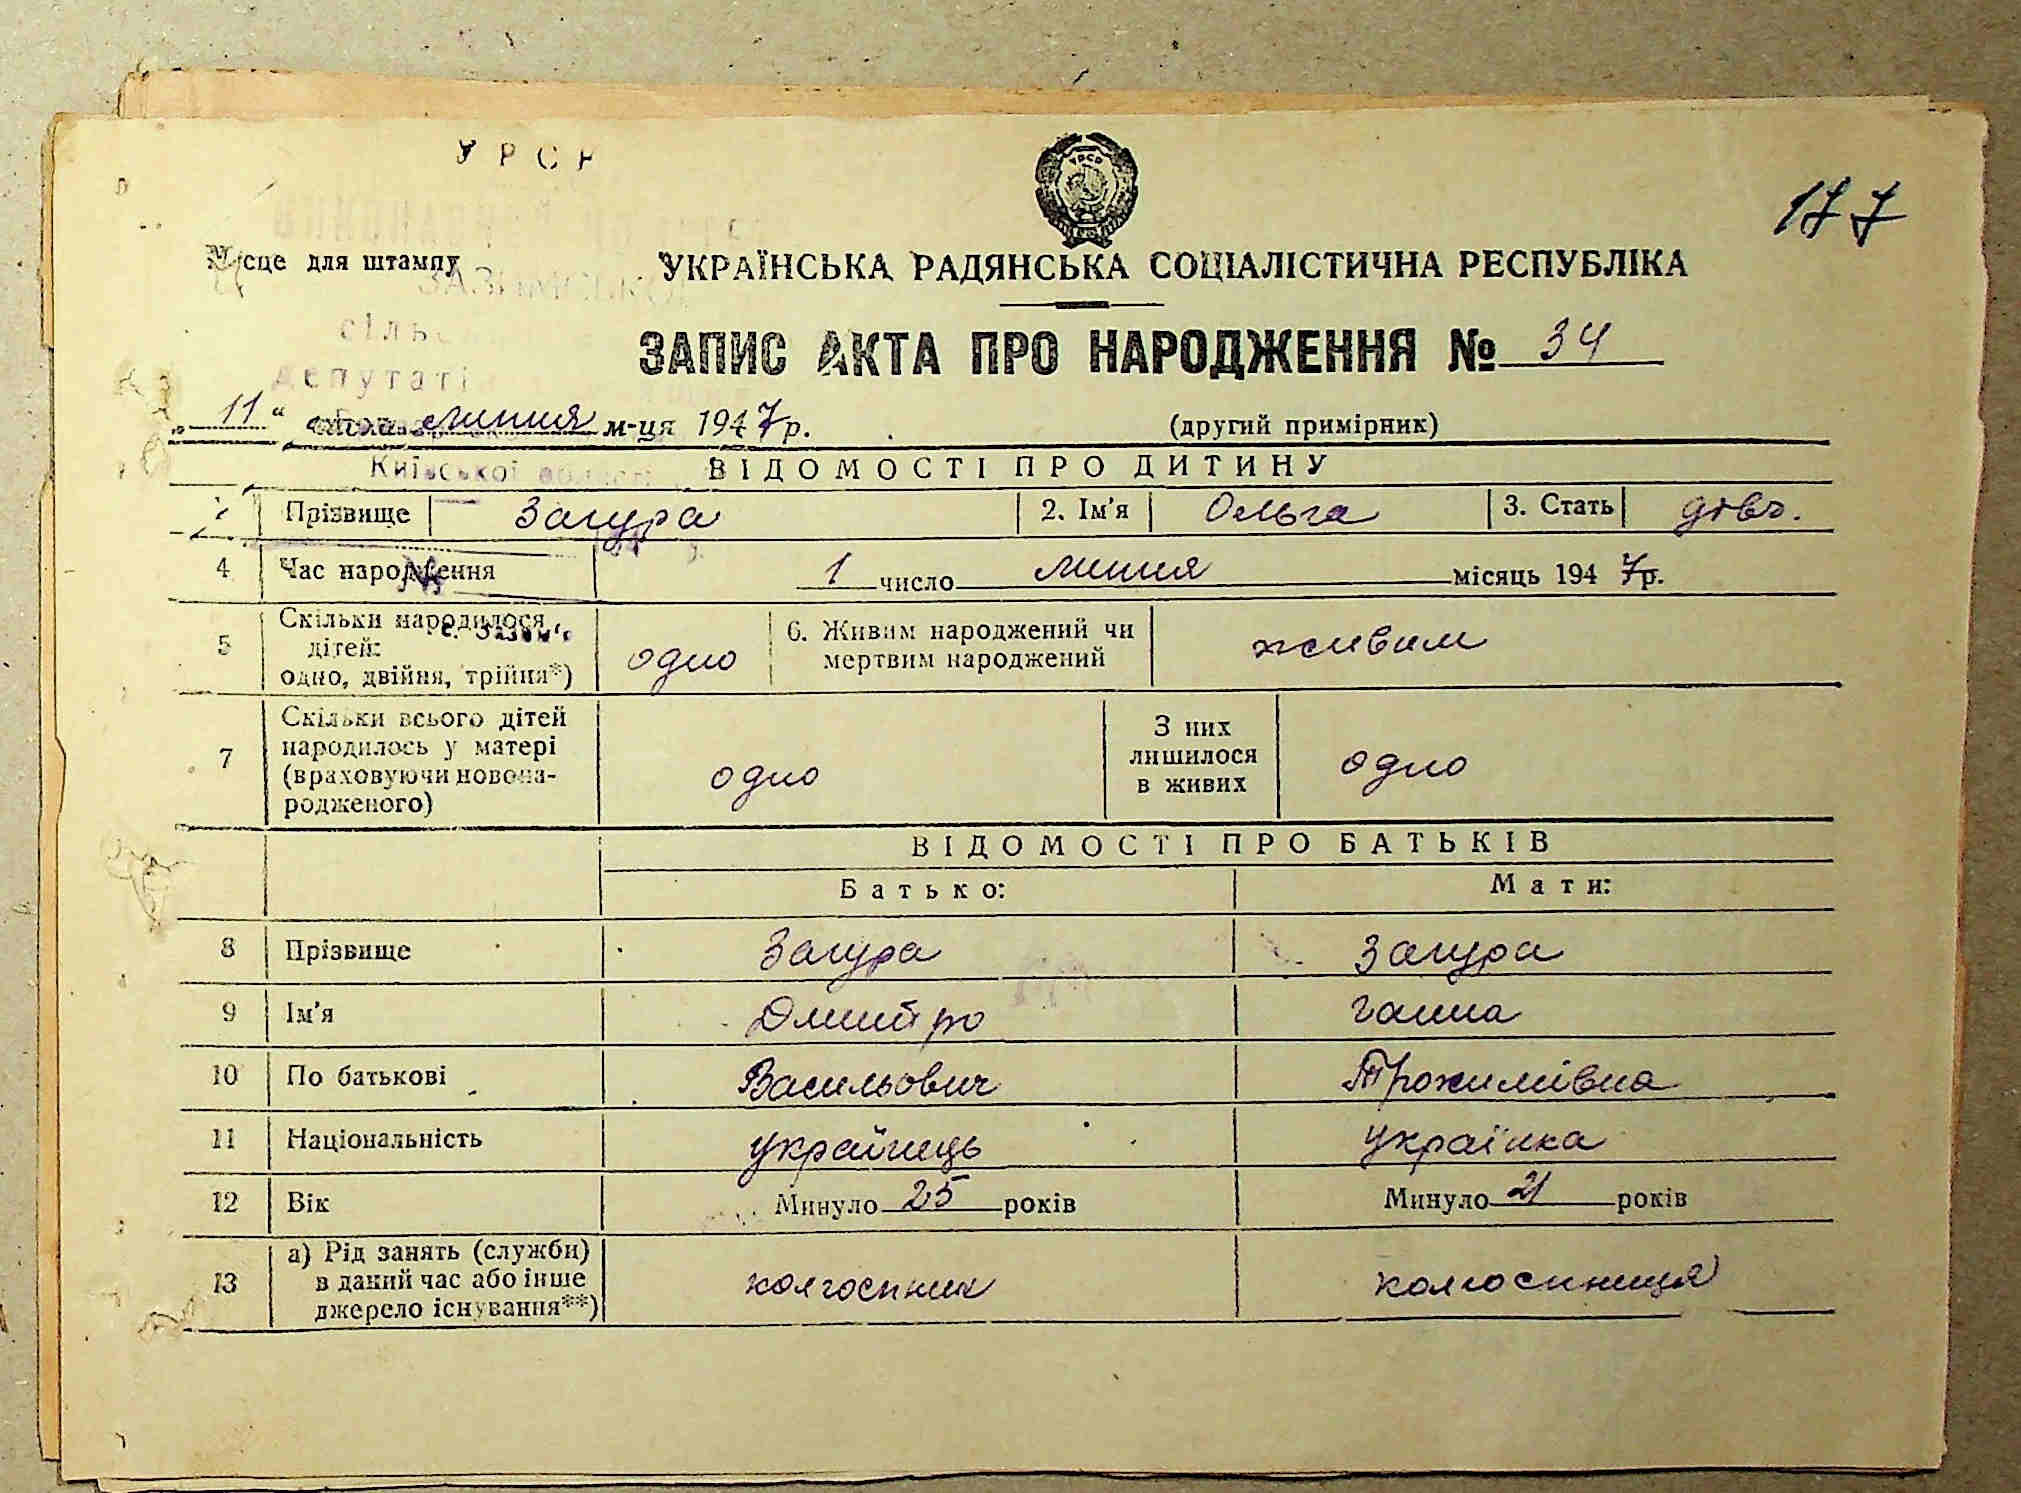 УРСР
177
Місце для штампу
УКРАЇНСЬКА РАДЯНСЬКА СОЦІАЛІСТИЧНА РЕСПУБЛІКА
сіль
депутаті
Київської
ЗАПИС АКТА ПРО НАРОДЖЕННЯ № 34
„11“ липня м-ця 1947р. (другий примірник)
ВІДОМОСТІ ПРО ДИТИНУ
Прізвище Загура 2. Ім'я Ольга 3. Стать дівч.
4 Час народження 1 число липня місяць 1947р.
5 Скільки народилося дітей: одно, двійня, трійня*) одно 6. Живим народжений чи мертвим народжений живим
7 Скільки всього дітей народилось у матері (враховуючи новонародженого) одно З них лишилося в живих одно
ВІДОМОСТІ ПРО БАТЬКІВ
Батько: Мати:
8 Прізвище Загура Загура
9 Ім'я Дмитро Ганна
10 По батькові Васильович Трохимівна
11 Національність українець українка
12 Вік Минуло 25 років Минуло 21 років
13 а) Рід занять (служби) в даний час або інше джерело існування**) колгоспник колгоспниця